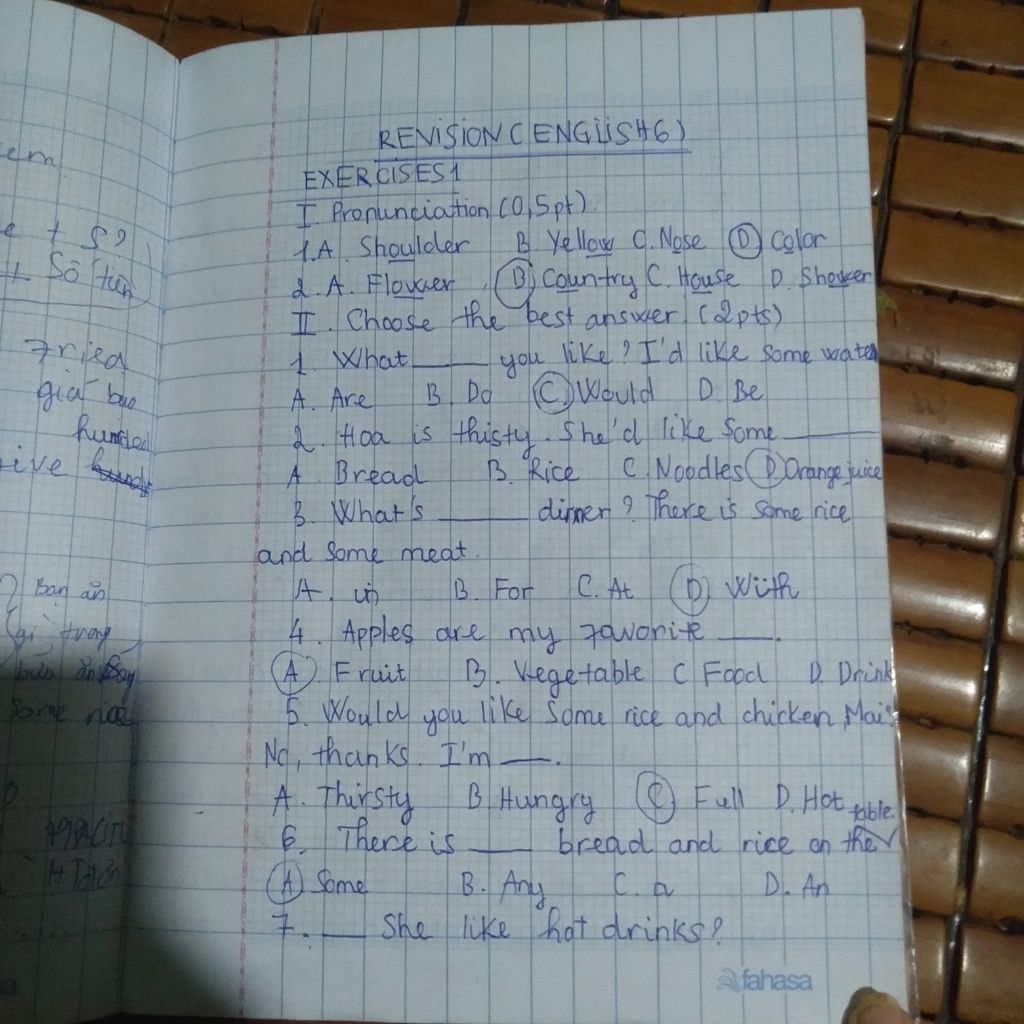 em
e + S?
# Số tiền
Fried
giá bao
hundred
ive
Bạn ăn
trong
Some rice
REVISION (ENGLISH 6)
EXERCISES 1
I. Pronunciation (0,5pt)
1. A. Shoulder B. Yellow C. Nose D. Color
2. A. Flower B. Country C. House D. Shower
II. Choose the best answer. (2pts)
1. What ____ you like? I'd like some water
A. Are B. Do C. Would D. Be
2. Hoa is thisty. She'd like some ____
A. Bread B. Rice C. Noodles D. Orange juice
3. What's ____ dinner? There is some rice
and some meat.
A. in B. For C. At D. With
4. Apples are my favorite ____.
A. Fruit B. Vegetable C Food D. Drink
5. Would you like some rice and chicken Mai?
No, thanks. I'm ____.
A. Thirsty B. Hungry C. Full D. Hot
6. There is ____ bread and rice on the table.
A. Some B. Any C. a D. An
7. ____ She like hot drinks?
fahasa